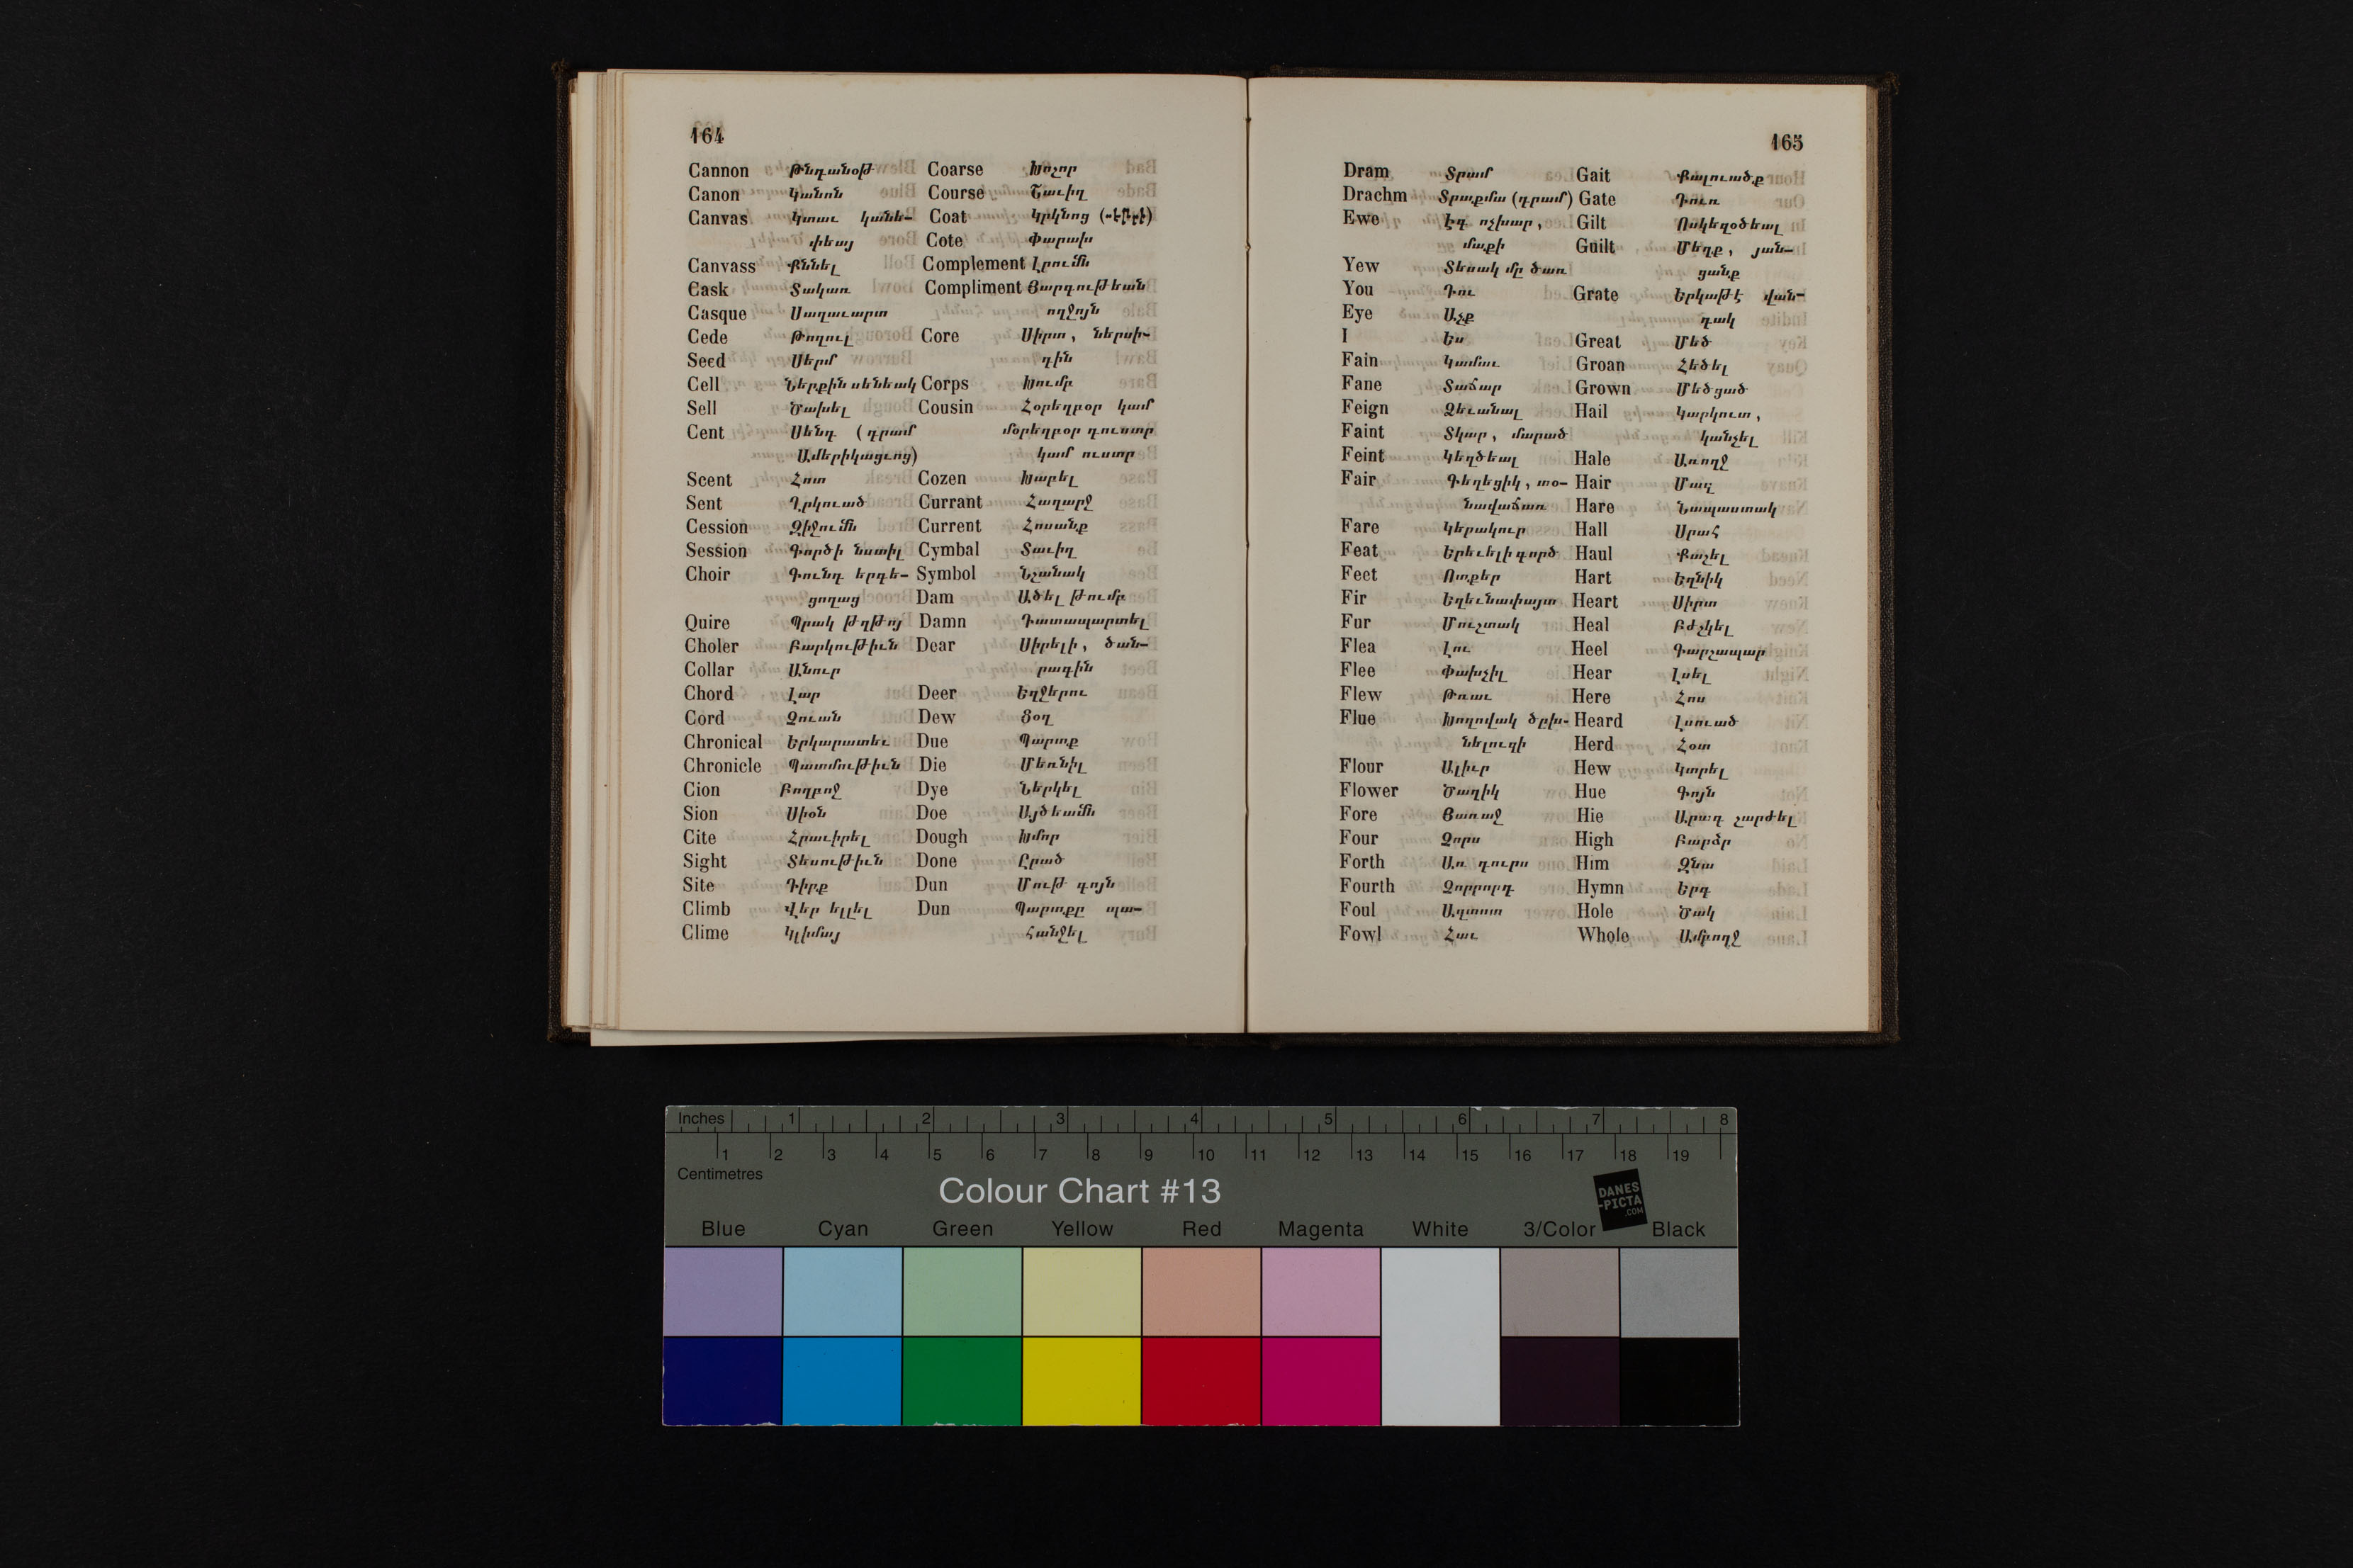 164
Cannon Թնդանօթ
Canon Կանոն
Canvas Կտաւ կանե-
փեայ
Canvass Քննել
Cask Տակառ
Casque Սաղաւարտ
Cede Թողուլ
Seed Սերմ
Cell Ներքին սենեակ
Sell Ծախել
Cent Սենդ (դրամ
Ամերիկացւոց)
Scent Հոտ
Sent Ղրկուած
Cession Զիջումն
Session Գործի նստիլ
Choir Գունդ երգե-
ցողաց
Quire Պրակ թղթոյ
Choler Բարկութիւն
Collar Անուր
Chord Լար
Cord Չուան
Chronical Երկարատեւ
Chronicle Պատմութիւն
Cion Բողբոջ
Sion Սիօն
Cite Հրաւիրել
Sight Տեսութիւն
Site Դիրք
Climb Վեր ելլել
Clime Կլիմայ
Coarse Խոշոր
Course Շաւիղ
Coat Կրկնոց
Cote Փարախ
Complement Լրումն
Compliment Յարգութեան
ողջոյն
Core Սիրտ, ներսի-
դին
Corps Խումբ
Cousin Հօրեղբօր կամ
մօրեղբօր դուստր
կամ ուստր
Cozen Խաբել
Currant Հաղարջ
Current Հոսանք
Cymbal Տաւիղ
Symbol Նշանակ
Dam Ածել թումբ
Damn Դատապարտել
Dear Սիրելի, ծան-
րագին
Deer Եղջերու
Dew Ցօղ
Due Պարտք
Die Մեռնիլ
Dye Ներկել
Doe Այծեամն
Dough Խմոր
Done Ըրած
Dun Մութ գոյն
Dun Պարտքը պա-
հանջել
165
Dram Տրամ
Drachm Տրաքմա (դրամ)
Ewe Էգ ոչխար,
մաքի
Yew Տեսակ մը ծառ
You Դու
Eye Աչք
I Ես
Fain Կամաւ
Fane Տաճար
Feign Ձեւանալ
Faint Տկար, մարած
Feint Կեղծեալ
Fair Գեղեցիկ, տօ-
նավաճառ
Fare Կերակուր
Feat Երեւելի գործ
Feet Ոտքեր
Fir Եղեւնափայտ
Fur Մուշտակ
Flea Լու
Flee Փախչիլ
Flew Թռաւ
Flue Խողովակ ծըխ-
նելուզի
Flour Ալիւր
Flower Ծաղիկ
Fore Յառաջ
Four Չորս
Forth Առ դուրս
Fourth Չորրորդ
Foul Աղտոտ
Fowl Հաւ
Gait Քալուածք
Gate Դուռ
Gilt Ոսկեզօծեալ
Guilt Մեղք, յան-
ցանք
Grate Երկաթէ վան-
դակ
Great Մեծ
Groan Հեծել
Grown Մեծցած
Hail Կարկուտ,
կանչել
Hale Առողջ
Hair Մազ
Hare Նապաստակ
Hall Սրահ
Haul Քաշել
Hart Եղնիկ
Heart Սիրտ
Heal Բժշկել
Heel Գարշապար
Hear Լսել
Here Հոս
Heard Լսուած
Herd Հօտ
Hew Կտրել
Hue Գոյն
Hie Արագ շարժել
High Բարձր
Him Զնա
Hymn Երգ
Hole Ծակ
Whole Ամբողջ
Inches 1 2 3 4 5 6 7 8
1 2 3 4 5 6 7 8 9 10 11 12 13 14 15 16 17 18 19
Centimetres
Colour Chart #13
DANES
-PICTA
.COM
Blue Cyan Green Yellow Red Magenta White 3/Color Black